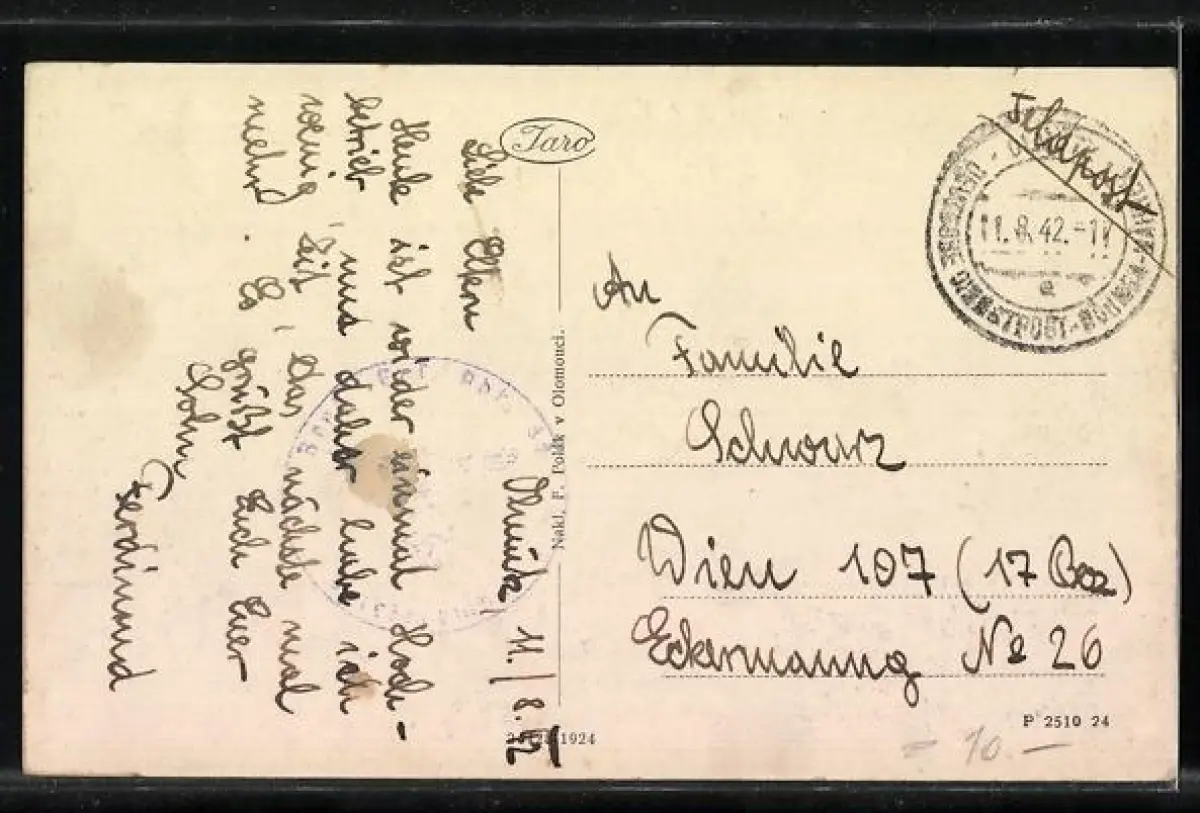 Olmütz, 11./8.42
Liebe Eltern
Heute ist wieder einmal Hoch-
betrieb, und daher habe ich
wenig Zeit. Das nächste mal
mehr. Es grüßt Euch Euer
Sohn
Ferdinand
Taro
Nakl. F. Polák v Olomouci.
1924
Feldpost
DEUTSCHE DIENSTPOST BÖHMEN-MÄHREN
11.8.42.-11
e
An
Familie
Schwarz
Wien 107 (17 Bez)
Eckermanng № 26
P 2519 24
= 10.—